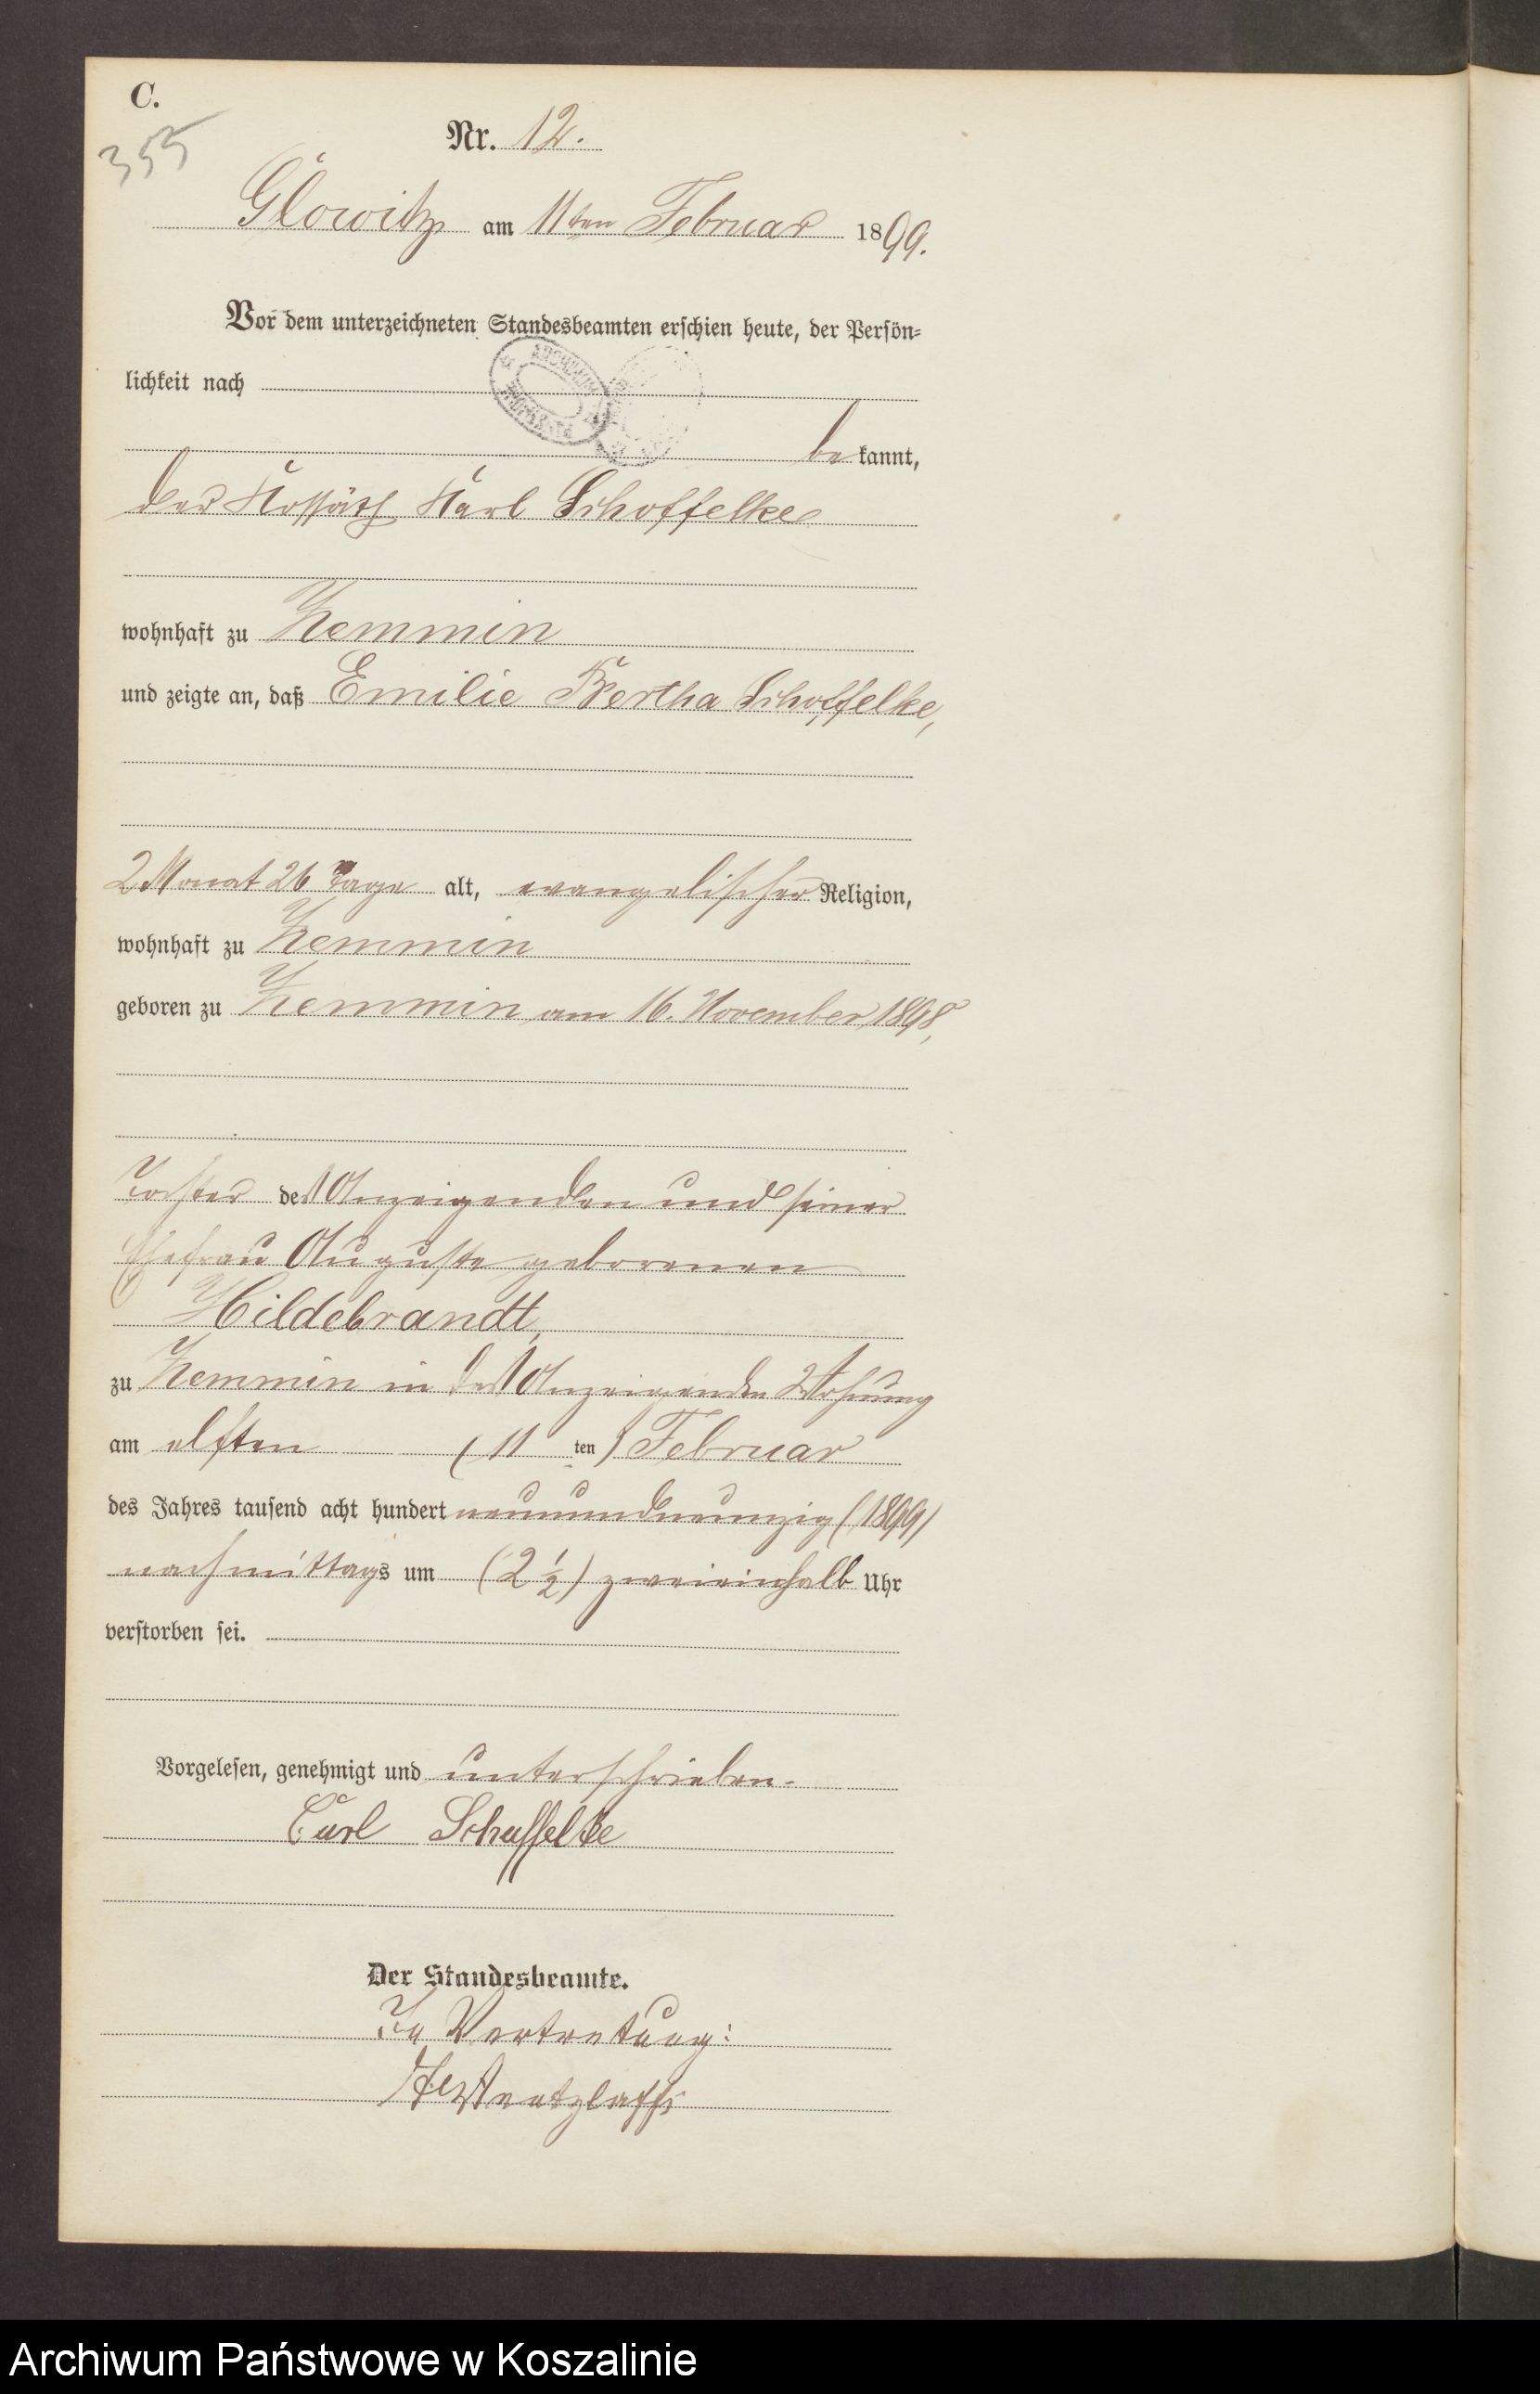 C.
355
Nr. 12.
Glowitz am 11ten Februar 1899.
Vor dem unterzeichneten Standesbeamten erschien heute, der Persön-
lichkeit nach
be kannt,
der Kossäth Karl Schoffelke
wohnhaft zu Zemmin
und zeigte an, daß Emilie Bertha Schoffelke,
2 Monat 26 Tage alt, evangelischer Religion,
wohnhaft zu Zemmin
geboren zu Zemmin am 16. November 1898,
Tochter des Anzeigenden und seiner
Ehefrau Auguste geborenen
Hildebrandt,
zu Zemmin in des Anzeigenden Wohnung
am elften (11 ten) Februar
des Jahres tausend acht hundert neunundneunzig (1899)
nachmittags um (2 1/2) zweieinhalb Uhr
verstorben sei.
Vorgelesen, genehmigt und unterschrieben.
Carl Schuffelke
Der Standesbeamte.
In Vertretung:
Archiwum Państwowe w Koszalinie